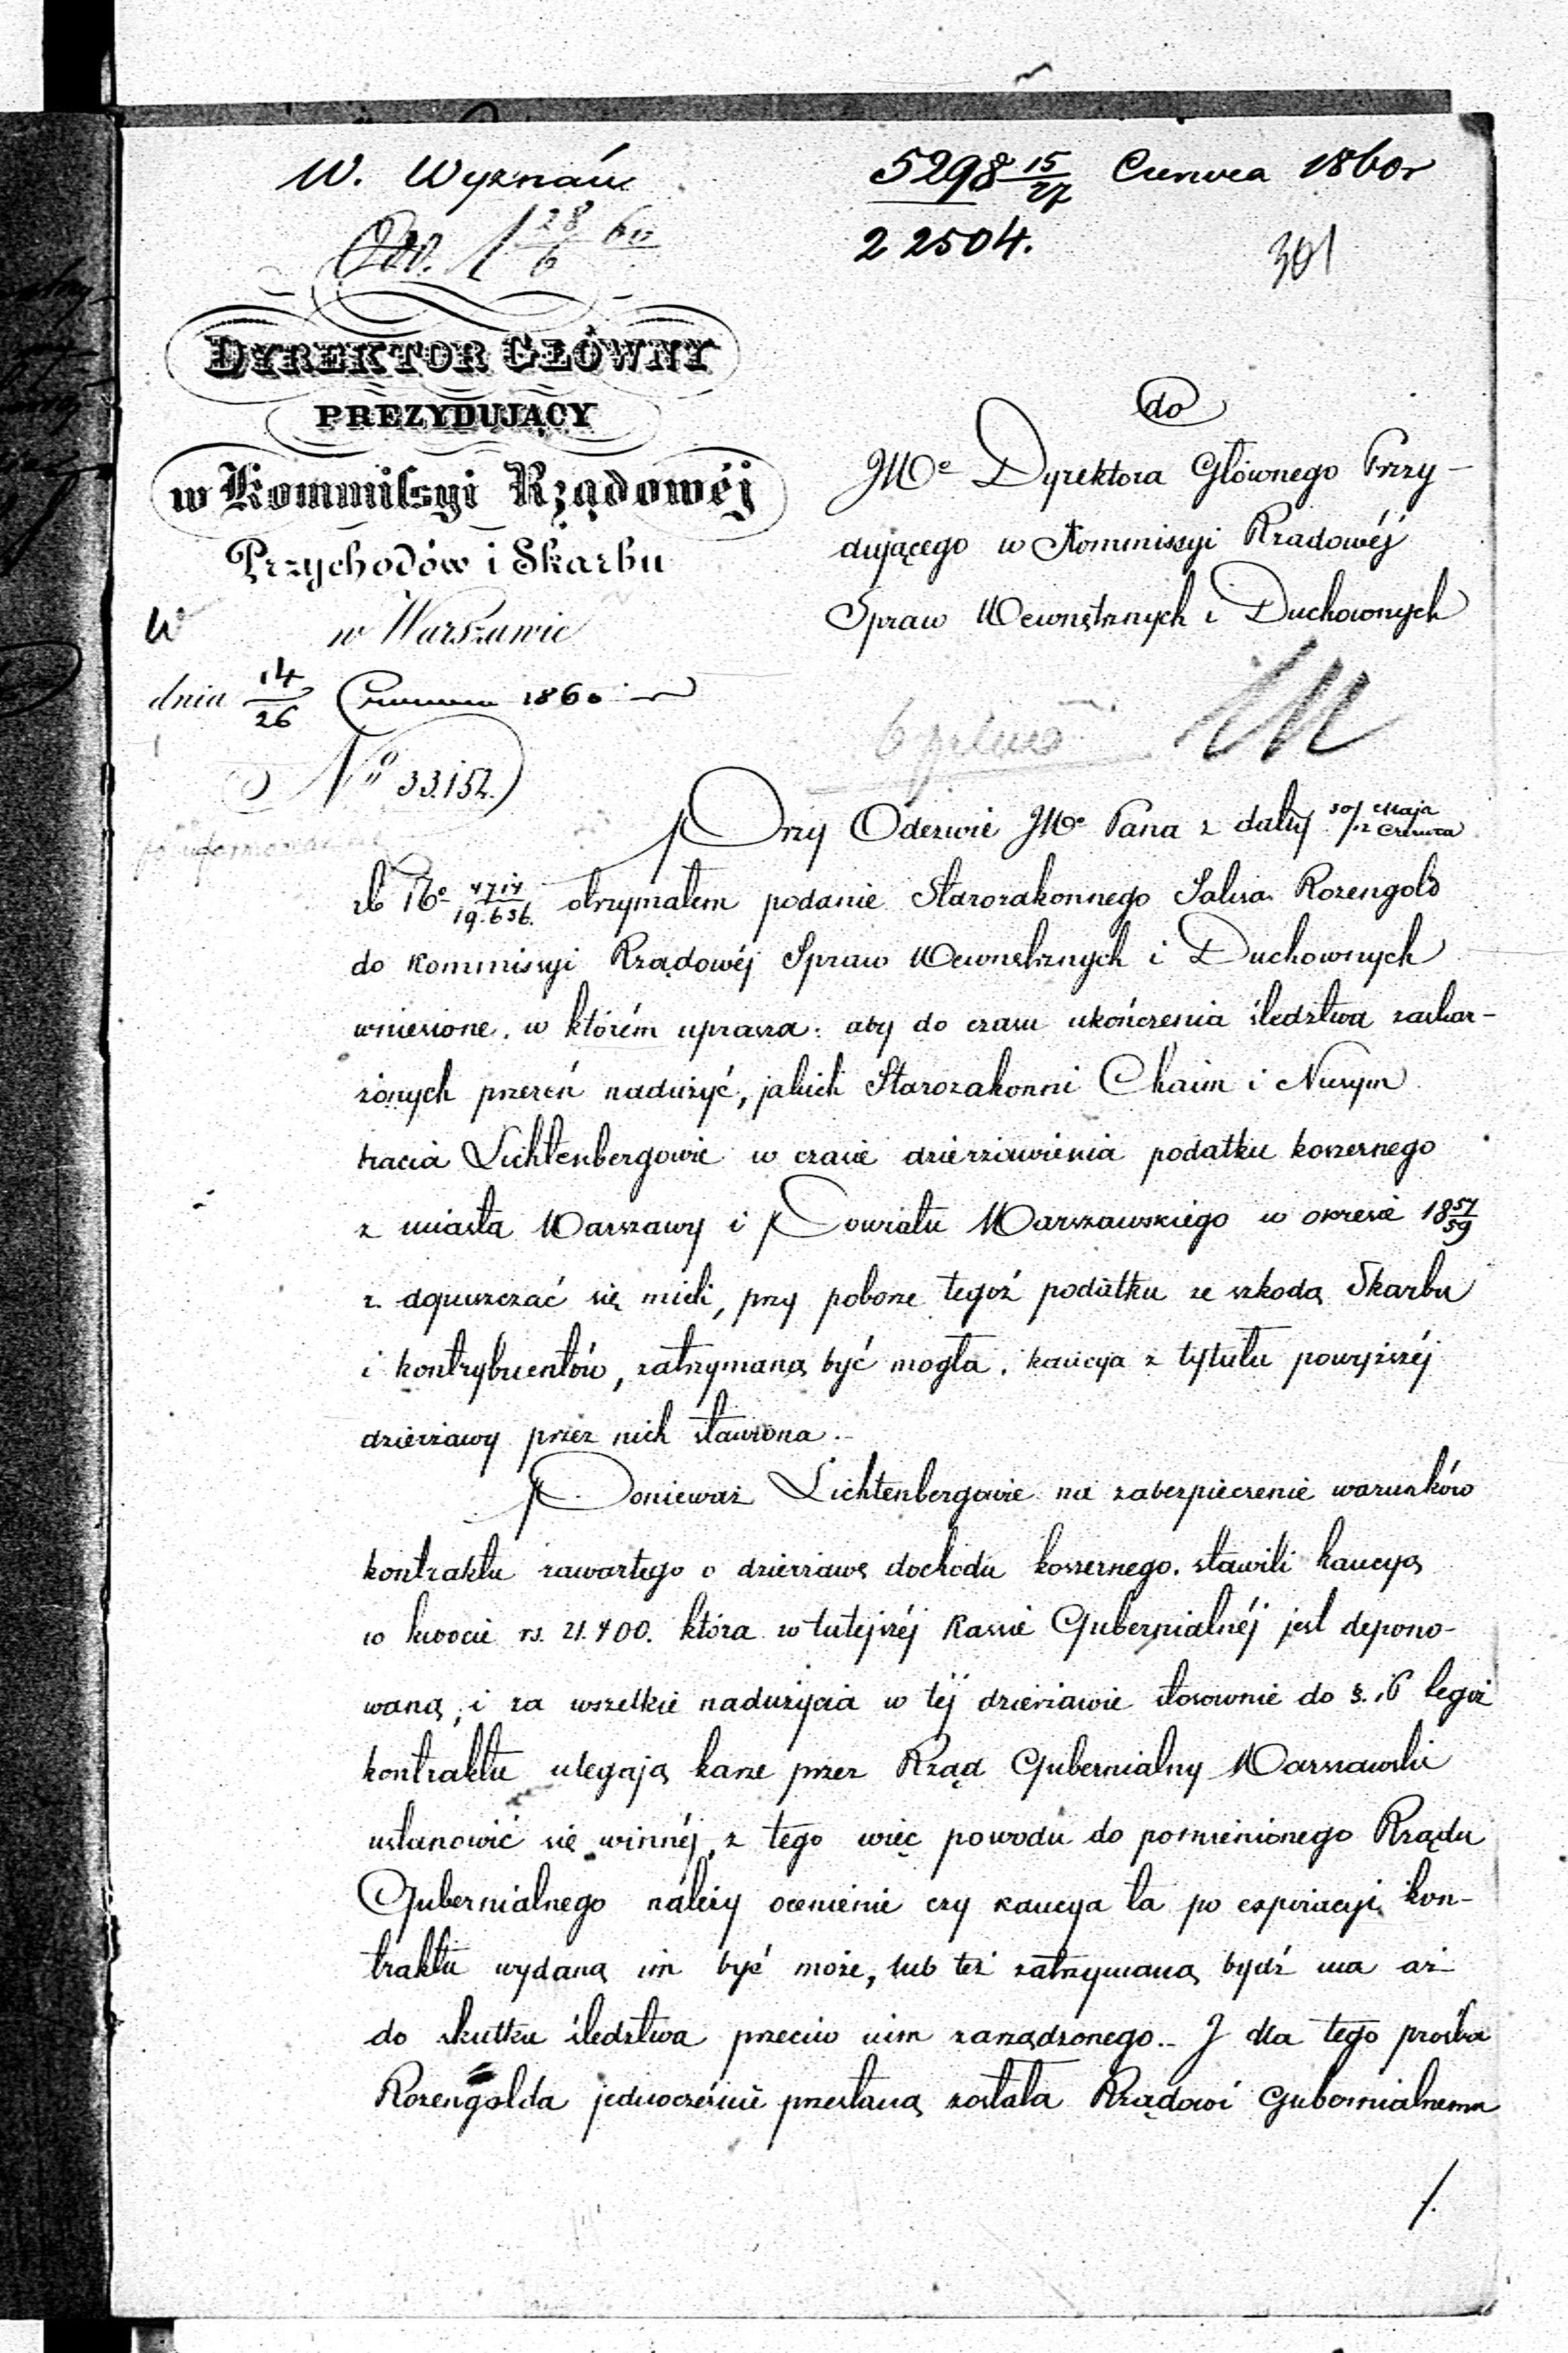 W. Wyznań
5298 15/27 Czerwca 1860r
22504.
28/6 60
301
DYREKTOR GŁÓWNY
PREZYDUJĄCY
w Kommissyi Rządowéj
Przychodów i Skarbu
w Warszawie
dnia 14/26 Czerwca 1860
No 33.152.
do
JWo Dyrektora Głównego Przy-
dującego w Kommissyi Rządowéj
Spraw Wewnętrznych i Duchownych
Przy Odezwie JWo Pana z daty 30/ Maja /12 Czerwca
No 4714/19.636. otrzymałem podanie Starozakonnego Rozengold
do Kommissyi Rządowéj Spraw Wewnętrznych i Duchownych
wniesione, w którém uprasza: aby do czasu ukończenia śledztwa zaskar-
żonych przezeń nadużyć, jakich Starozakonni Chaim i Nusym
bracia Lichtenbergowie w czasie dzierżawienia podatku koszernego
z miasta Warszawy i Powiatu Warszawskiego w okresie 1857/59
r. dopuszczać się mieli, przy poborze tegoż podatku ze szkodą Skarbu
i kontrybuentów, zatrzymaną być mogła, kaucya z tytułu powyższéj
dzierżawy przez nich stawiona.
Ponieważ Lichtenbergowie na zabezpieczenie warunków
kontraktu zawartego o dzierżawę dochodu koszernego, stawili kaucyą
w kwocie rs. 21.400. która w tutejszéj Kassie Gubernialnéj jest depono-
waną, i za wszelkie nadużycia w téj dzierżawie stosownie do §. 16 tegoż
kontraktu ulegają karze przez Rząd Gubernialny Warszawski
ustanowić się winnéj, z tego więc powodu do pomienionego Rządu
Gubernialnego należy ocenienie czy kaucya ta po expiracyi kon-
traktu wydaną im być może, lub też zatrzymaną bydź ma aż
do skutku śledztwa przeciw nim zarządzonego.. I dla tego prośba
Rozengolda jednocześnie przesłaną została Rządowi Gubernialnemu
/.